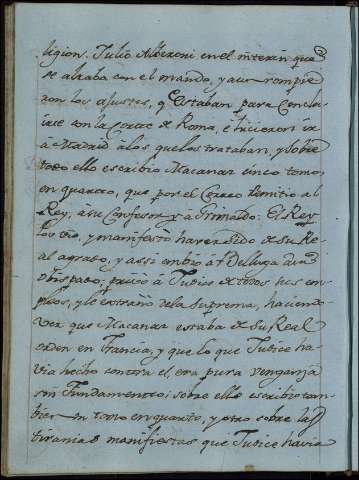 ligion. Julio Alberoni en el interin que
se alzaba con el mando, y aun rompie
ron los ajustes, q̃ estaban para conclu
irse con la Corte de Roma, è hicieron ir
a Madrid a los que los trataban, y sobre
todo ello escribio Macanaz cinco tomos
en quarto, que por el Correo remitio al
Rey, à su Confesor y a Grimaldo: El Rey
los vio, y manifestò haver sido de su Re
al agrado, y assi embiò à Belluga à su
obispado; privò à Judice de todos sus em
pleos, y le extrañò de la Suprema, hacien
ver que Macanaz estaba de su Real
orden en Francia, y que lo que Judice ha
via hecho contra el, era pura venganza
sin fundamento; sobre ello escribio tam
bien un tomo en quarto, y otro sobre las
tiranias manifiestas que Judice havia